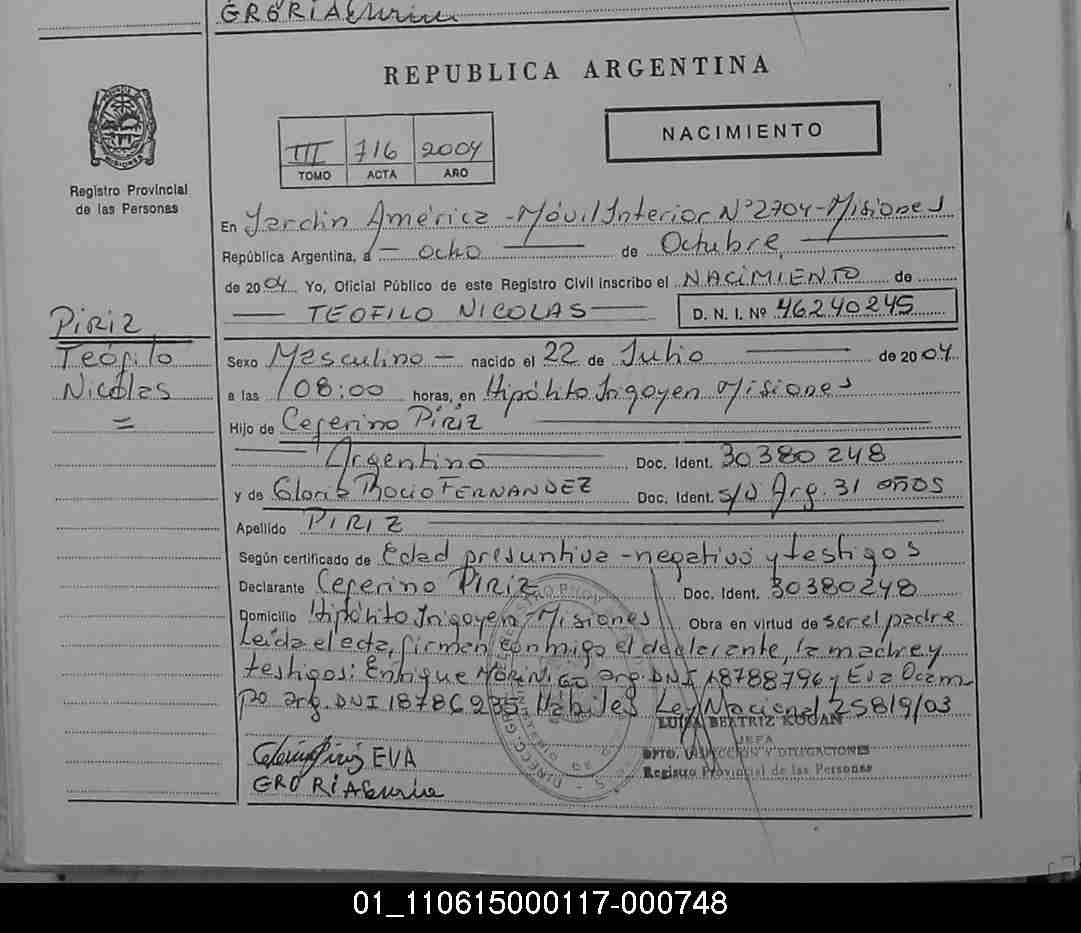 GRORIA
REPUBLICA ARGENTINA
MISIONES
Registro Provincial
de las Personas
III 716 2004
TOMO ACTA AÑO
NACIMIENTO
En Jardin América - Móvil Interior Nº 2704 - Misiones
República Argentina, a - ocho de Octubre,
de 2004 Yo, Oficial Público de este Registro Civil inscribo el NACIMIENTO de
TEOFILO NICOLAS D. N. I. Nº 46240245
PIRIZ
Teófilo
Nicolas
=
Sexo Masculino - nacido el 22 de Julio de 2004
a las 08:00 horas, en Hipólito Irigoyen Misiones
Hijo de Ceferino PIRIZ
Argentino Doc. Ident. 30380248
y de Gloria Rocio FERNANDEZ Doc. Ident. s/d Arg. 31 años
Apellido PIRIZ
Según certificado de Edad presuntiva - negativo y testigos
Declarante Ceferino PIRIZ Doc. Ident. 30380248
Domicilio Hipólito Irigoyen - Misiones Obra en virtud de ser el padre
Leida el acta, firman conmigo el declarante, la madre y
testigos: Enrique MORINIGO arg. DNI 18788796 y Eva Ocam
po arg. DNI 18786235. Hábiles Ley Nacional 25819/03
LUISA BEATRIZ KOGAN
JEFA
DPTO. INSPECCION Y DELEGACIONES
Registro Provincial de las Personas
EVA
GRORIA
01_110615000117-000748